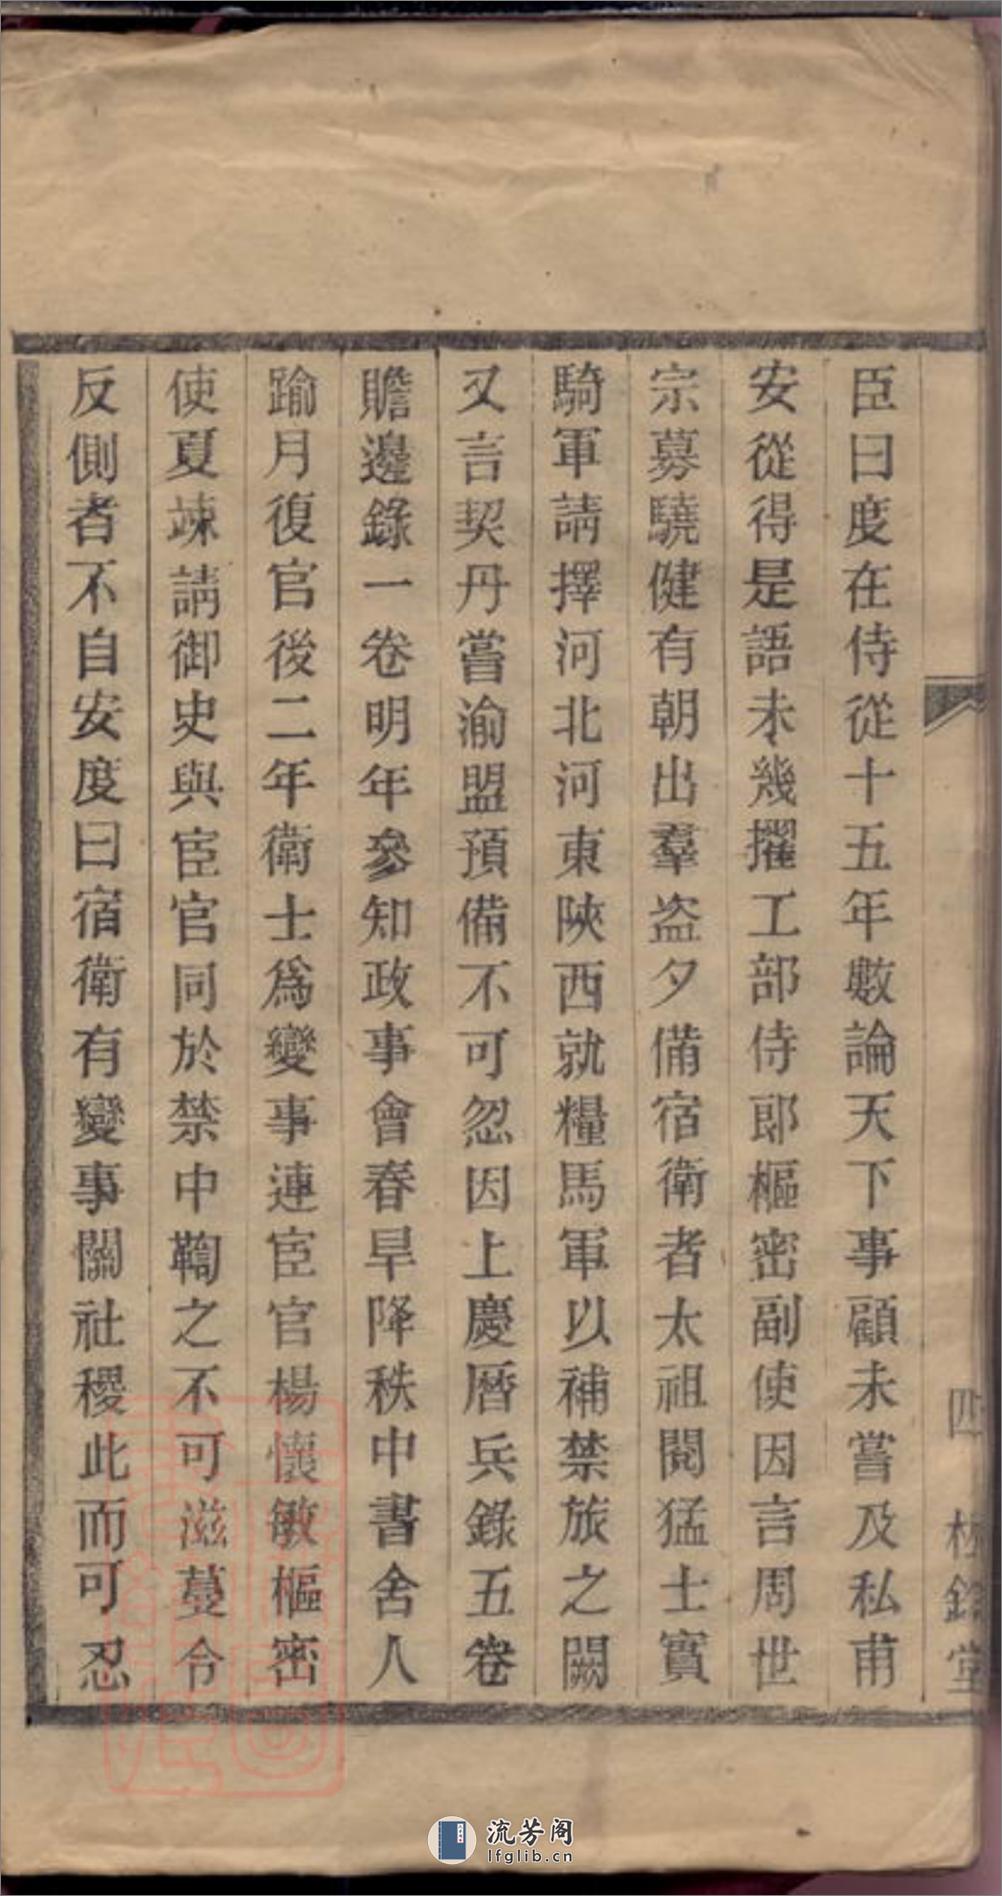 臣曰度在侍從十五年數論天下事顧未嘗及私甫
安從得是語未幾擢工部侍郎樞密副使因言周世
宗募驍健有朝出羣盗夕備宿衛者太祖閱猛士實
騎軍請擇河北河東陜西就糧馬軍以補禁旅之闕
又言契丹嘗渝盟預備不可忽因上慶曆兵錄五卷
贍邊錄一卷明年參知政事會春旱降秩中書舍人
踰月復官後二年衛士爲變事連宦官楊懷敏樞密
使夏竦請御史與宦官同於禁中鞫之不可滋蔓令
反側者不自安度曰宿衛有變事關社稷此而可忍
四
堂
流芳阁
lfglib.cn